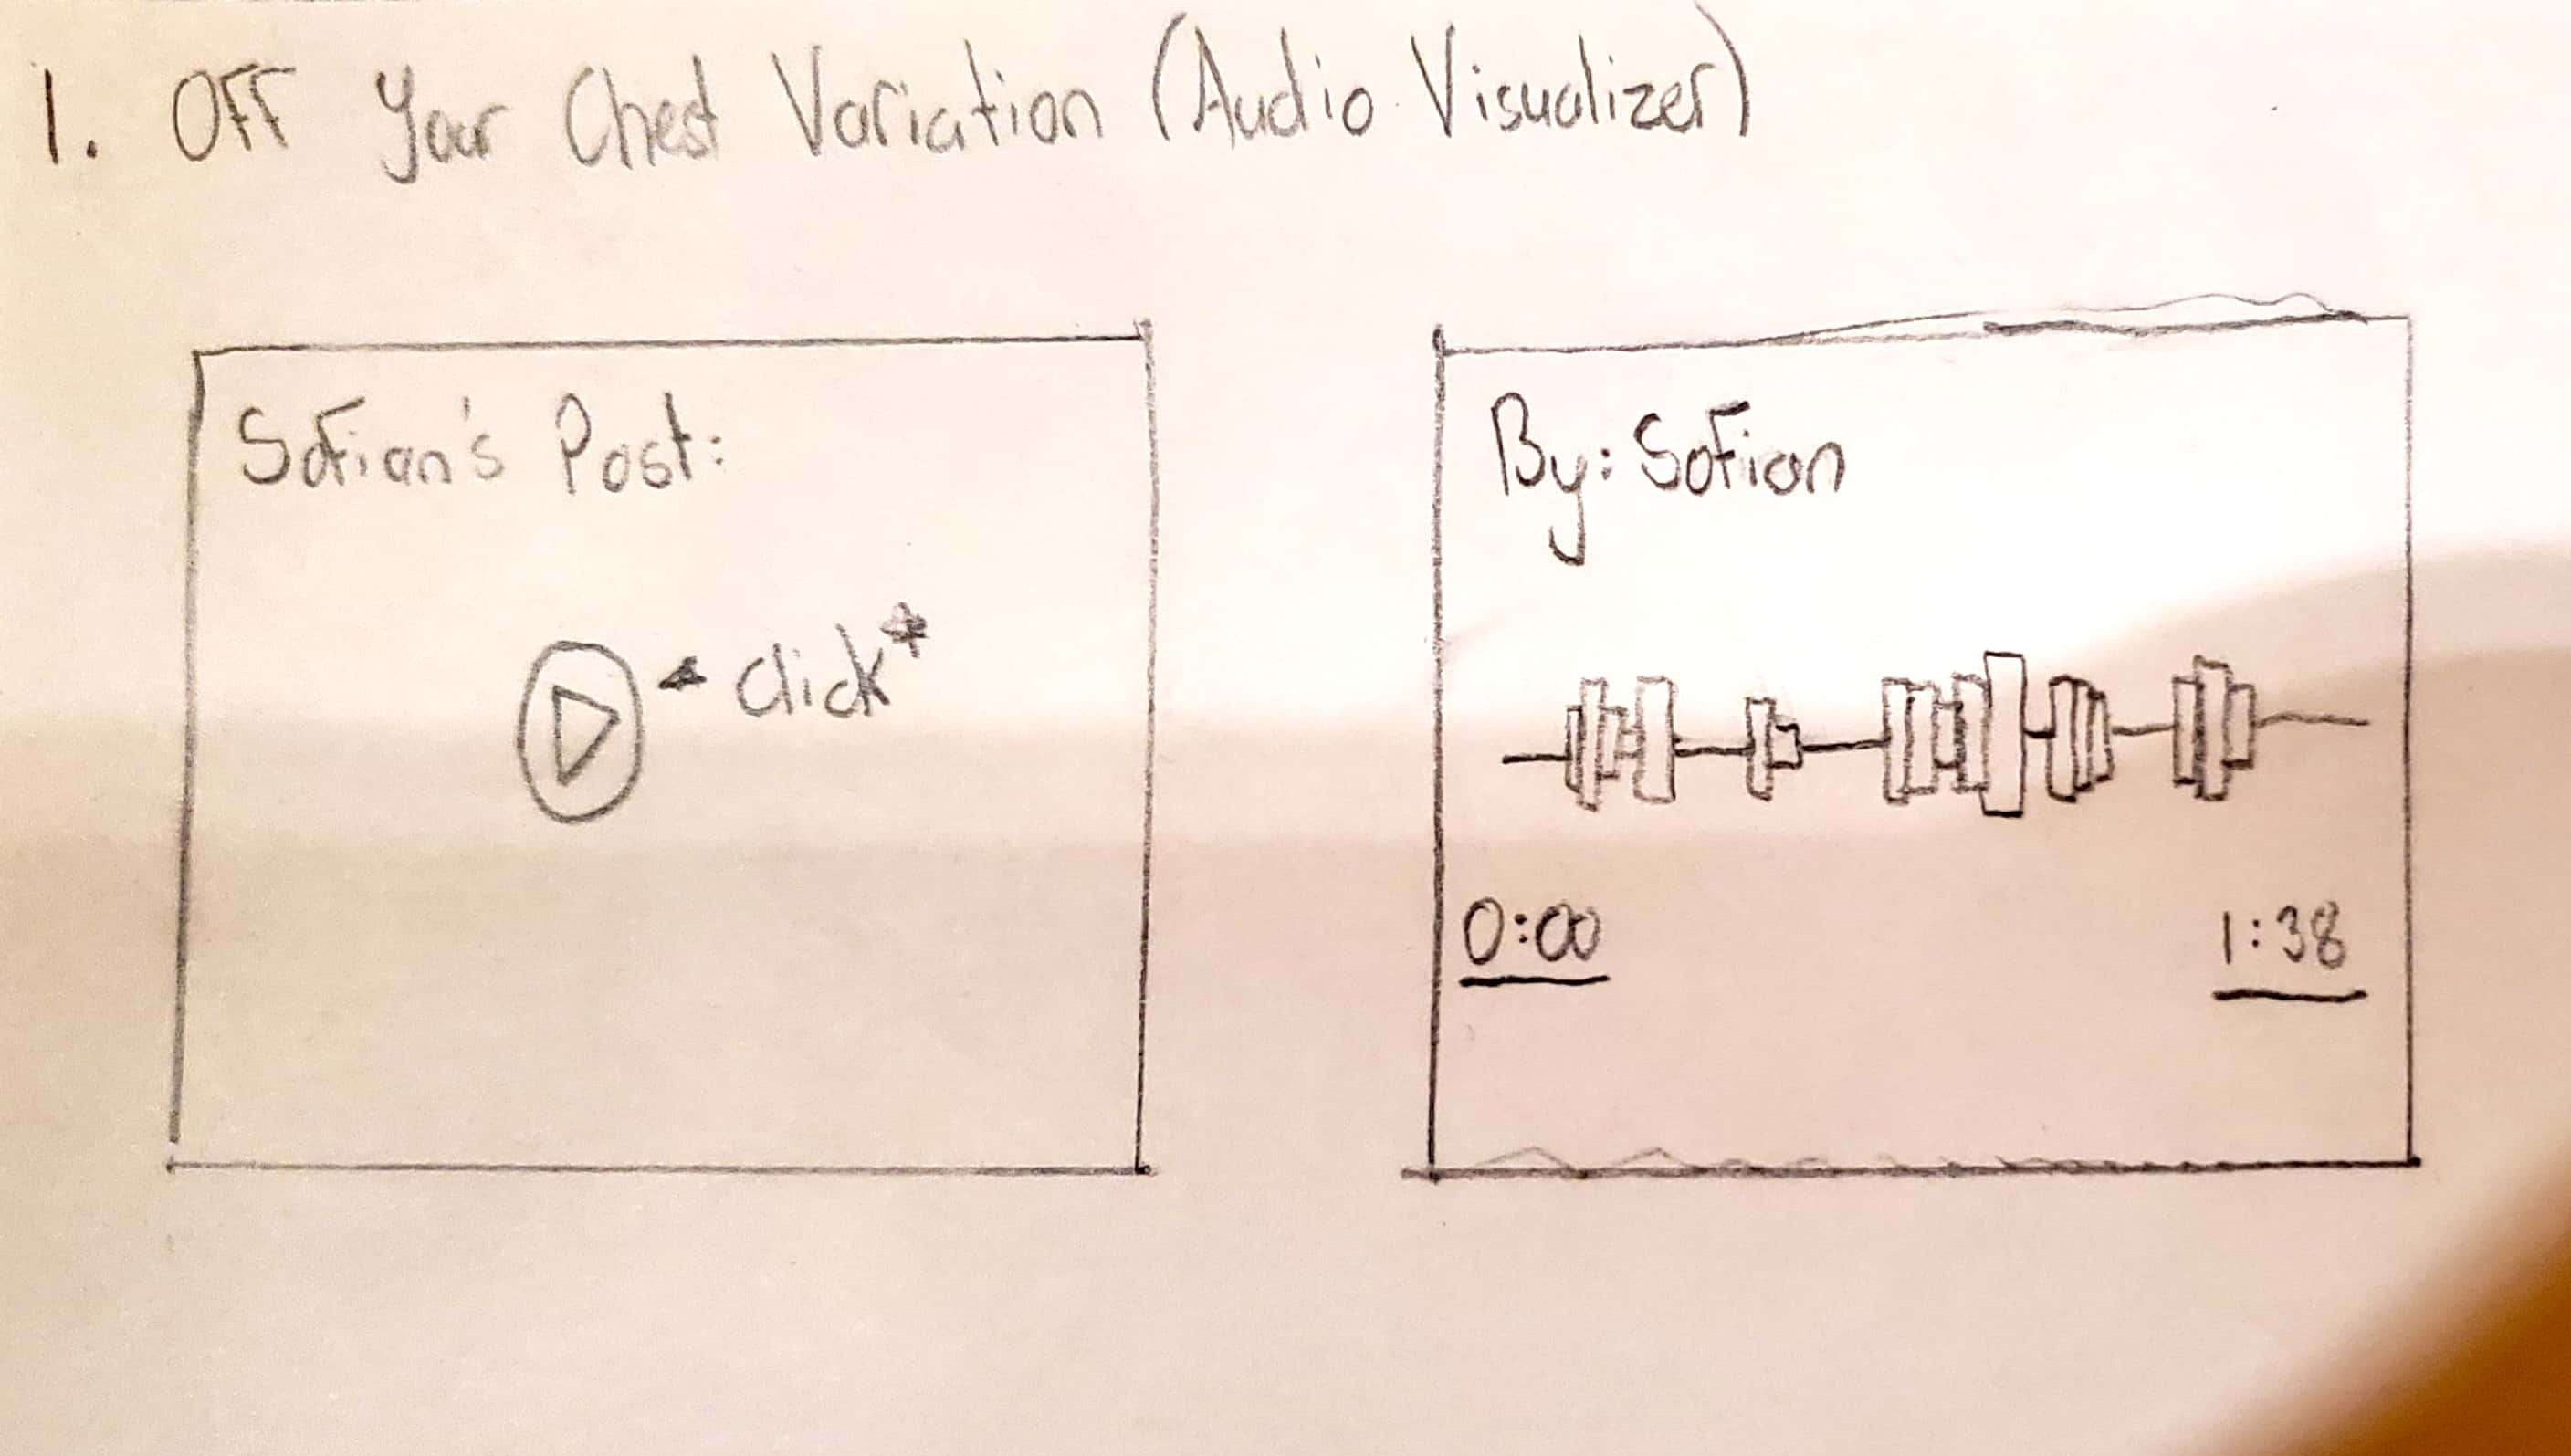 1. Off Your Chest Variation (Audio Visualizer)
Sofian's Post:
* Click *
By: Sofian
0:00
1:38